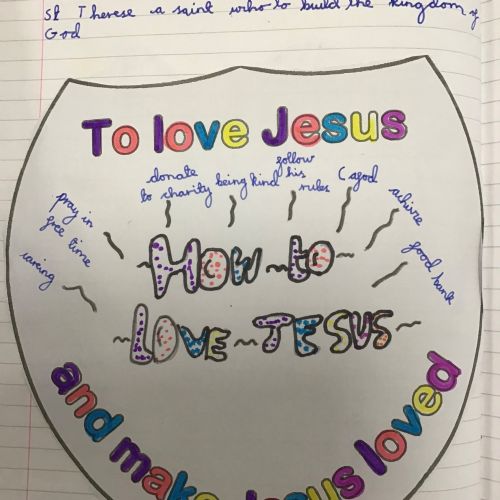 St Therese a saint who to build the kingdom of
God
To love Jesus
caring
pray in
free time
donate
to charity
being kind
follow
his
rules
achive
good bank
HOW to
LOVE JESUS
and make Jesus loved